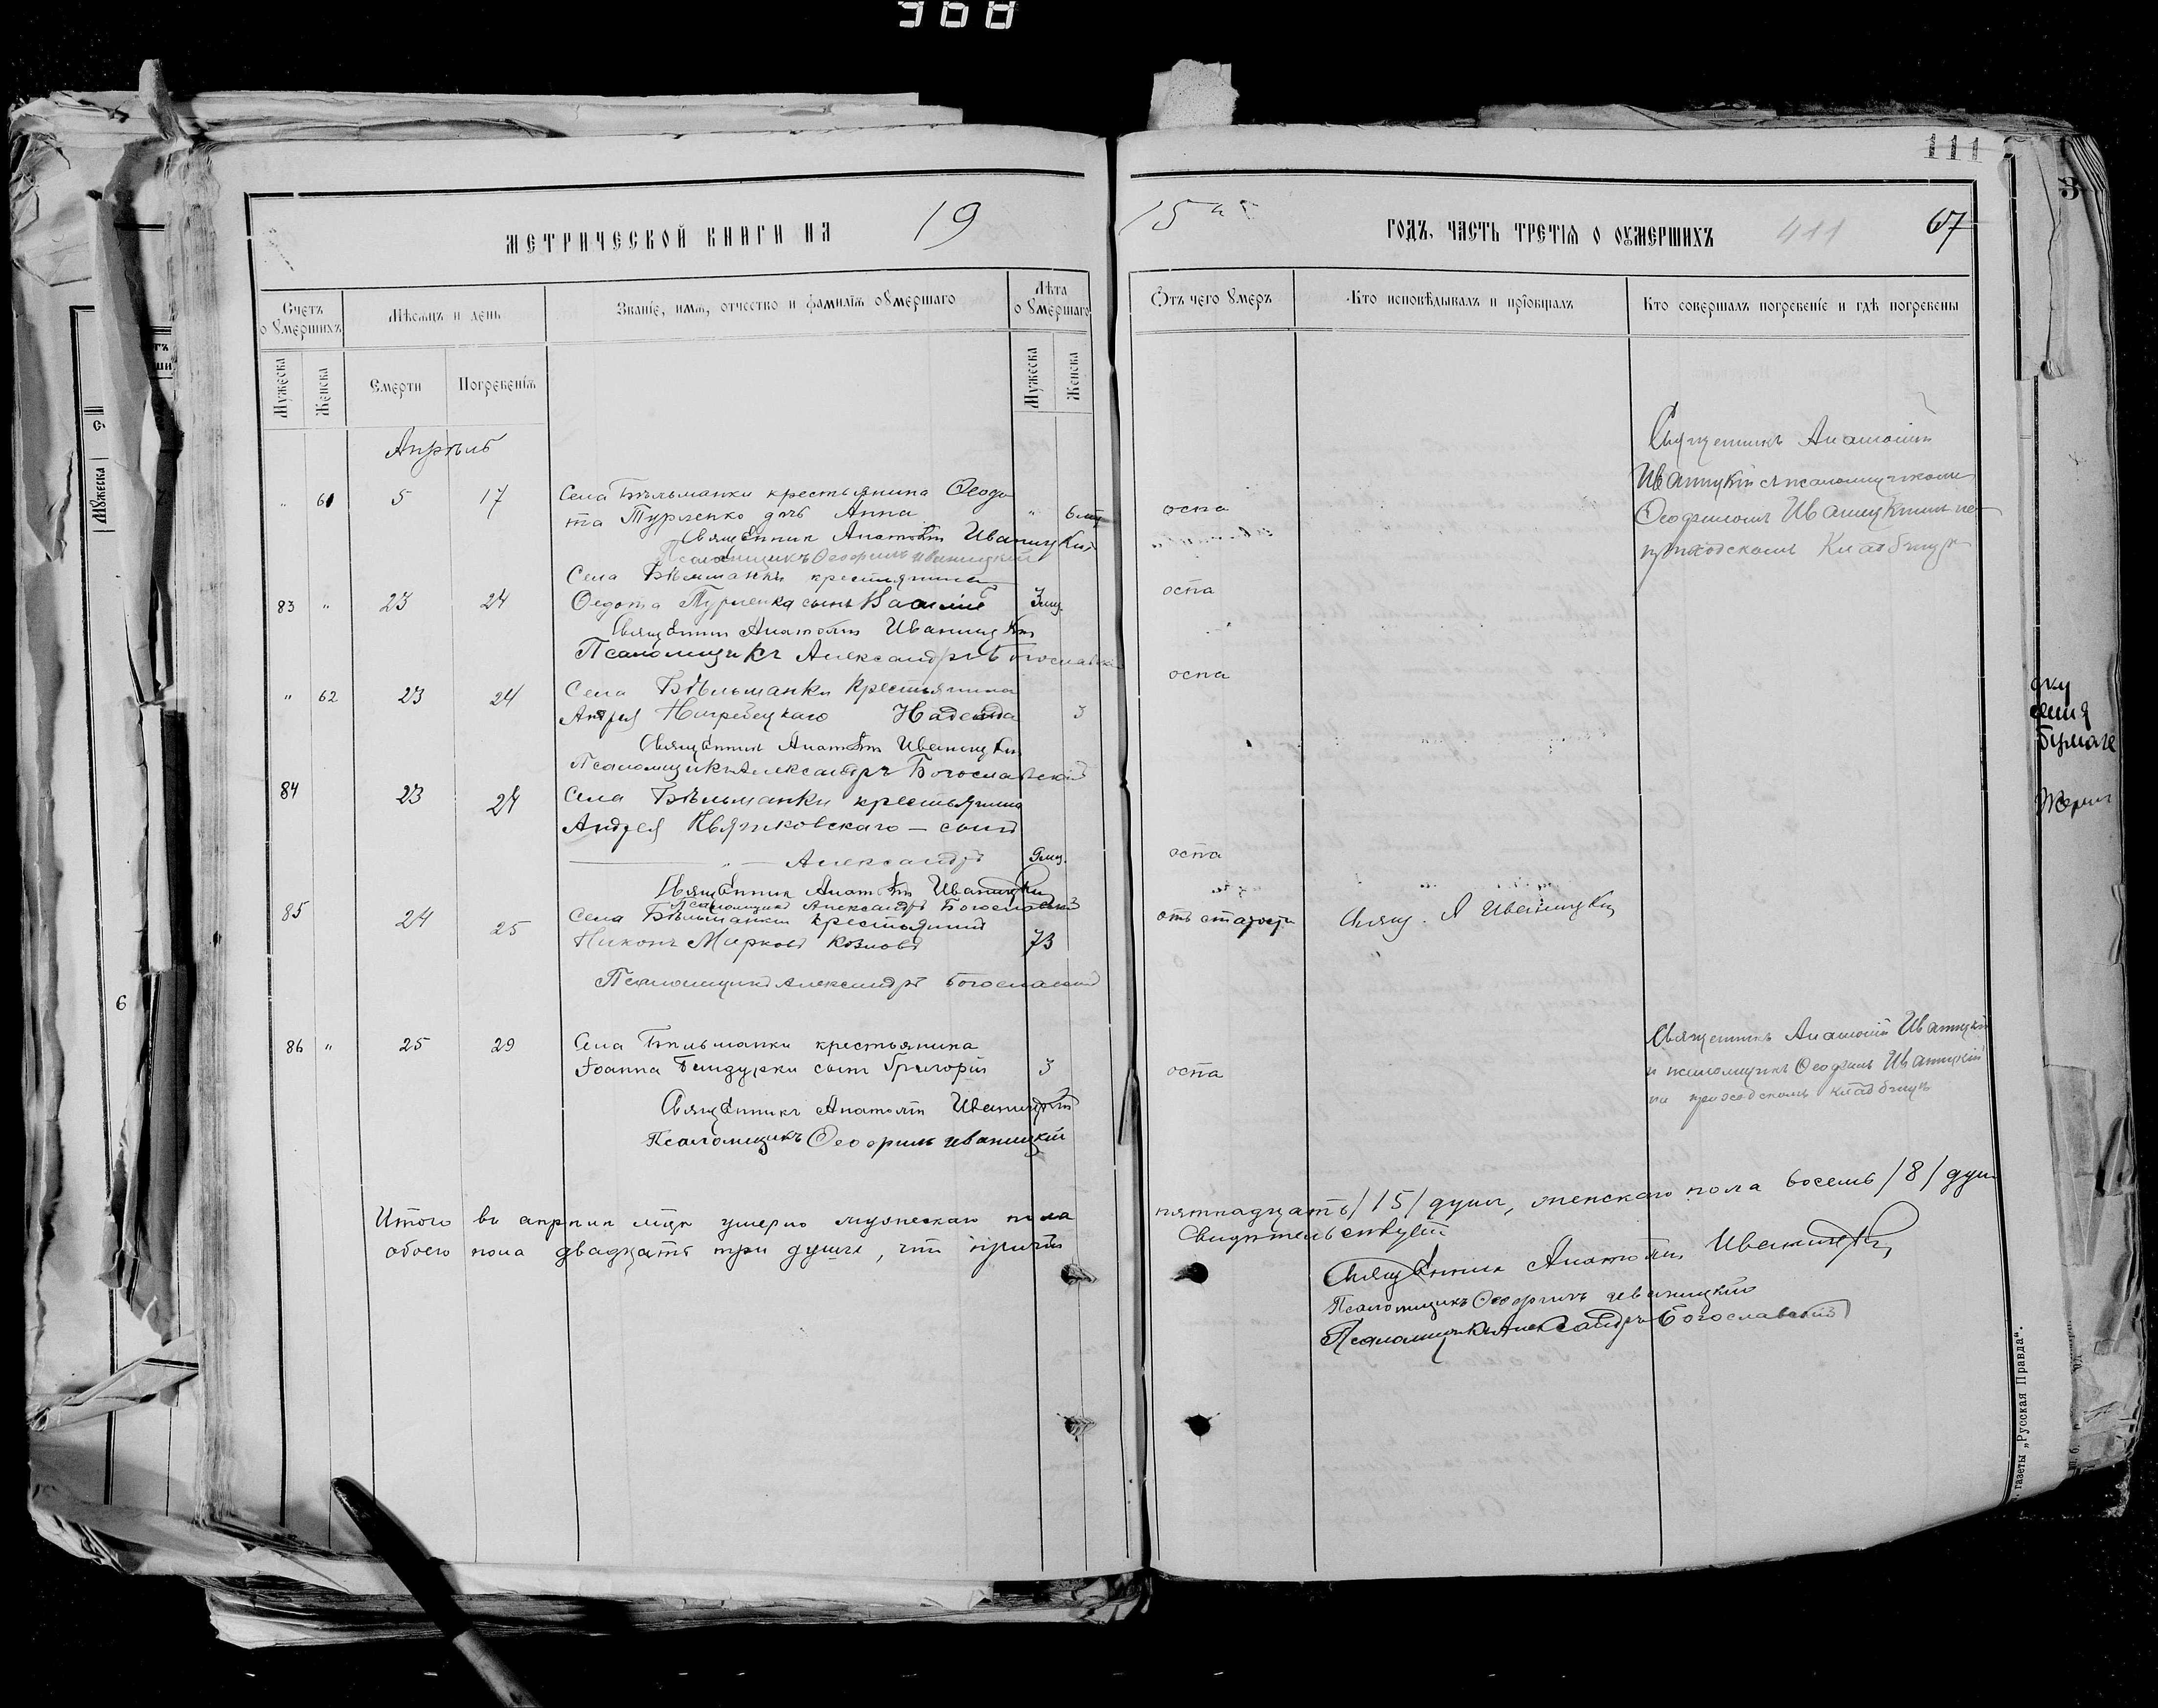 111
МЕТРИЧЕСКОЙ КНИГИ НА 19
15 ГОДЪ, ЧАСТЬ ТРЕТІЯ О ОУМЕРШИХЪ 411 67
Счетъ оумершихъ
Мѣсяцъ и день
Званіе, имя, отчество и фамилія оумершаго
Лѣта оумершаго
Отъ чего умеръ
Кто исповѣдывалъ и пріобщалъ
Кто совершалъ погребеніе и гдѣ погребены
Мужеска
Женска
Смерти
Погребенія
Мужеска
Женска
Апрѣль
„ 61 5 17 Села Бѣльманки крестьянина Ѳедо
та Турленко дочь Анна „ 6 мц оспа
Священник Анатолій Иваницкій
Псаломщикъ Ѳеофилъ Иваницкій
Священникъ Анатолій
Иваницкій съ псаломщикомъ
Ѳеофиломъ Иваницкимъ на
приходскомъ кладбищѣ
Села Бѣльманки крестьянина
83 „ 23 24 Ѳедота Турленка сынъ Василій 3 мц. оспа
Священник Анатолій Иваницкій
Псаломщикъ Александръ Богославскій
„ 62 23 24 Села Бѣльманки крестьянина оспа
Андрея Надежда 3
Священникъ Анатолій Иваницкій
Псаломщикъ Александръ Богославскій
84 23 24 Села Бѣльманки крестьянина
Андрея Квятковскаго — сынъ
„ — Александръ 9 мц. оспа
Священник Анатолій Иваницкій
Псаломщикъ Александръ Богославскій
85 24 25 Села Бѣльманки крестьянинъ
Никонъ Марковъ Козловъ 73 отъ старости Свящ. А Иваницкій
Псаломщикъ Александръ Богославскій
86 „ 25 29 Села Бѣльманки крестьянина
Іоанна сынъ Григорій 3 оспа
Священникъ Анатолій Иваницкій
Псаломщикъ Ѳеофилъ Иваницкій
Священникъ Анатолій Иваницкій
и псаломщикъ Ѳеофилъ Иваницкій
на приходскомъ кладбищѣ
Итого въ апрѣлѣ мцѣ умерло мужескаго пола пятнадцать /15/ душъ, женскаго пола восемь /8/ душъ
обоего пола двадцать три души, что причтъ свидѣтельствуетъ
Священник Анатолій Иваницкій
Псаломщикъ Ѳеофилъ Иваницкій
Псаломщикъ Александръ Богославскій
газеты „Русская Правда“.
Мужеска
6
бумаге